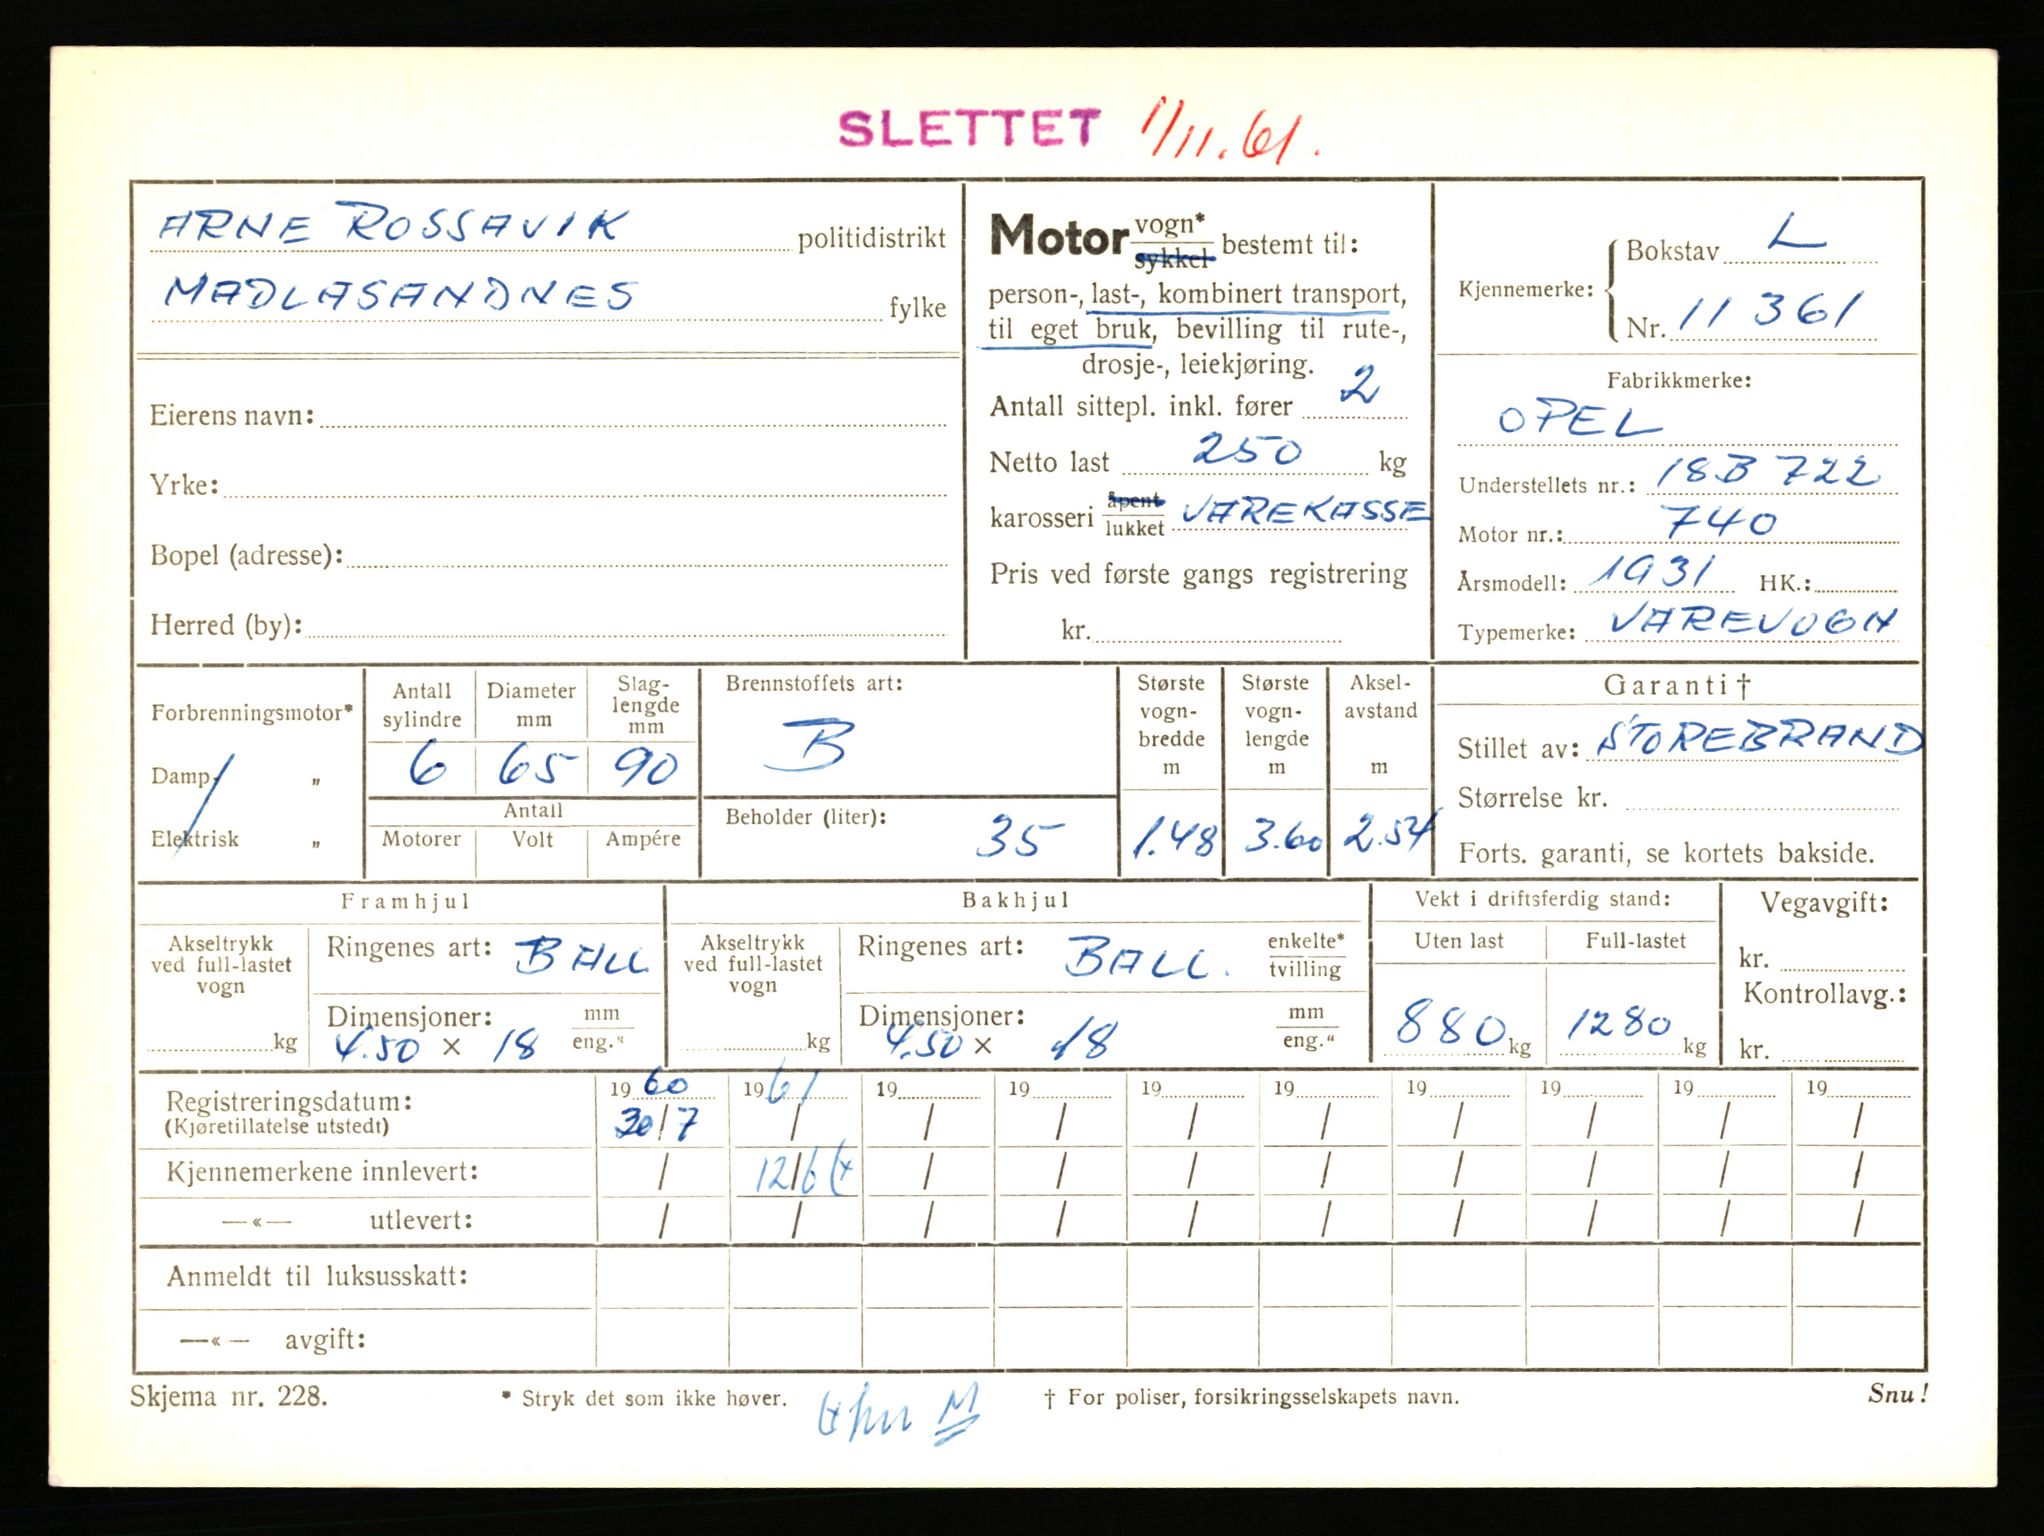 SLETTET 1/11.61.
ARNE ROSSAVIK politidistrikt
MADLASANDNES fylke
Eierens navn:
Yrke:
Bopel (adresse):
Herred (by):
Motor vogn* sykkel bestemt til:
person-, last-, kombinert transport,
til eget bruk, bevilling til rute-,
drosje-, leiekjøring.
Antall sittepl. inkl. fører 2
Netto last 250 kg
karosseri åpent lukket VAREKASSE
Pris ved første gangs registrering
kr.
Kjennemerke: Bokstav L
Nr. 11361
Fabrikkmerke:
OPEL
Understellets nr.: 18B722
Motor nr.: 740
Årsmodell: 1931 HK.:
Typemerke: VAREVOGN
Forbrenningsmotor*
Damp- „
Elektrisk „
Antall sylindre 6
Diameter mm 65
Slag-lengde mm 90
Antall
Motorer Volt Ampére
Brennstoffets art:
B
Beholder (liter): 35
Største vogn-bredde m 1.48
Største vogn-lengde m 3.60
Aksel-avstand m 2.54
Garanti †
Stillet av: STOREBRAND
Størrelse kr.
Forts. garanti, se kortets bakside.
Framhjul
Akseltrykk ved full-lastet vogn
kg
Ringenes art: BALL
Dimensjoner: mm eng.“
4.50 × 18
Bakhjul
Akseltrykk ved full-lastet vogn
kg
Ringenes art: BALL. enkelte* tvilling
Dimensjoner: mm eng.“
4.50 × 18
Vekt i driftsferdig stand:
Uten last Full-lastet
880 kg 1280 kg
Vegavgift:
kr.
Kontrollavg.:
kr.
1960 1961 19 19 19 19 19 19 19 19
Registreringsdatum: 30/7 / / / / / / / / /
(Kjøretillatelse utstedt)
Kjennemerkene innlevert: / 12/6 / / / / / / / /
—«— utlevert: / / / / / / / / / /
Anmeldt til luksusskatt:
—«— avgift:
Skjema nr. 228. * Stryk det som ikke høver. † For poliser, forsikringsselskapets navn. Snu!
M